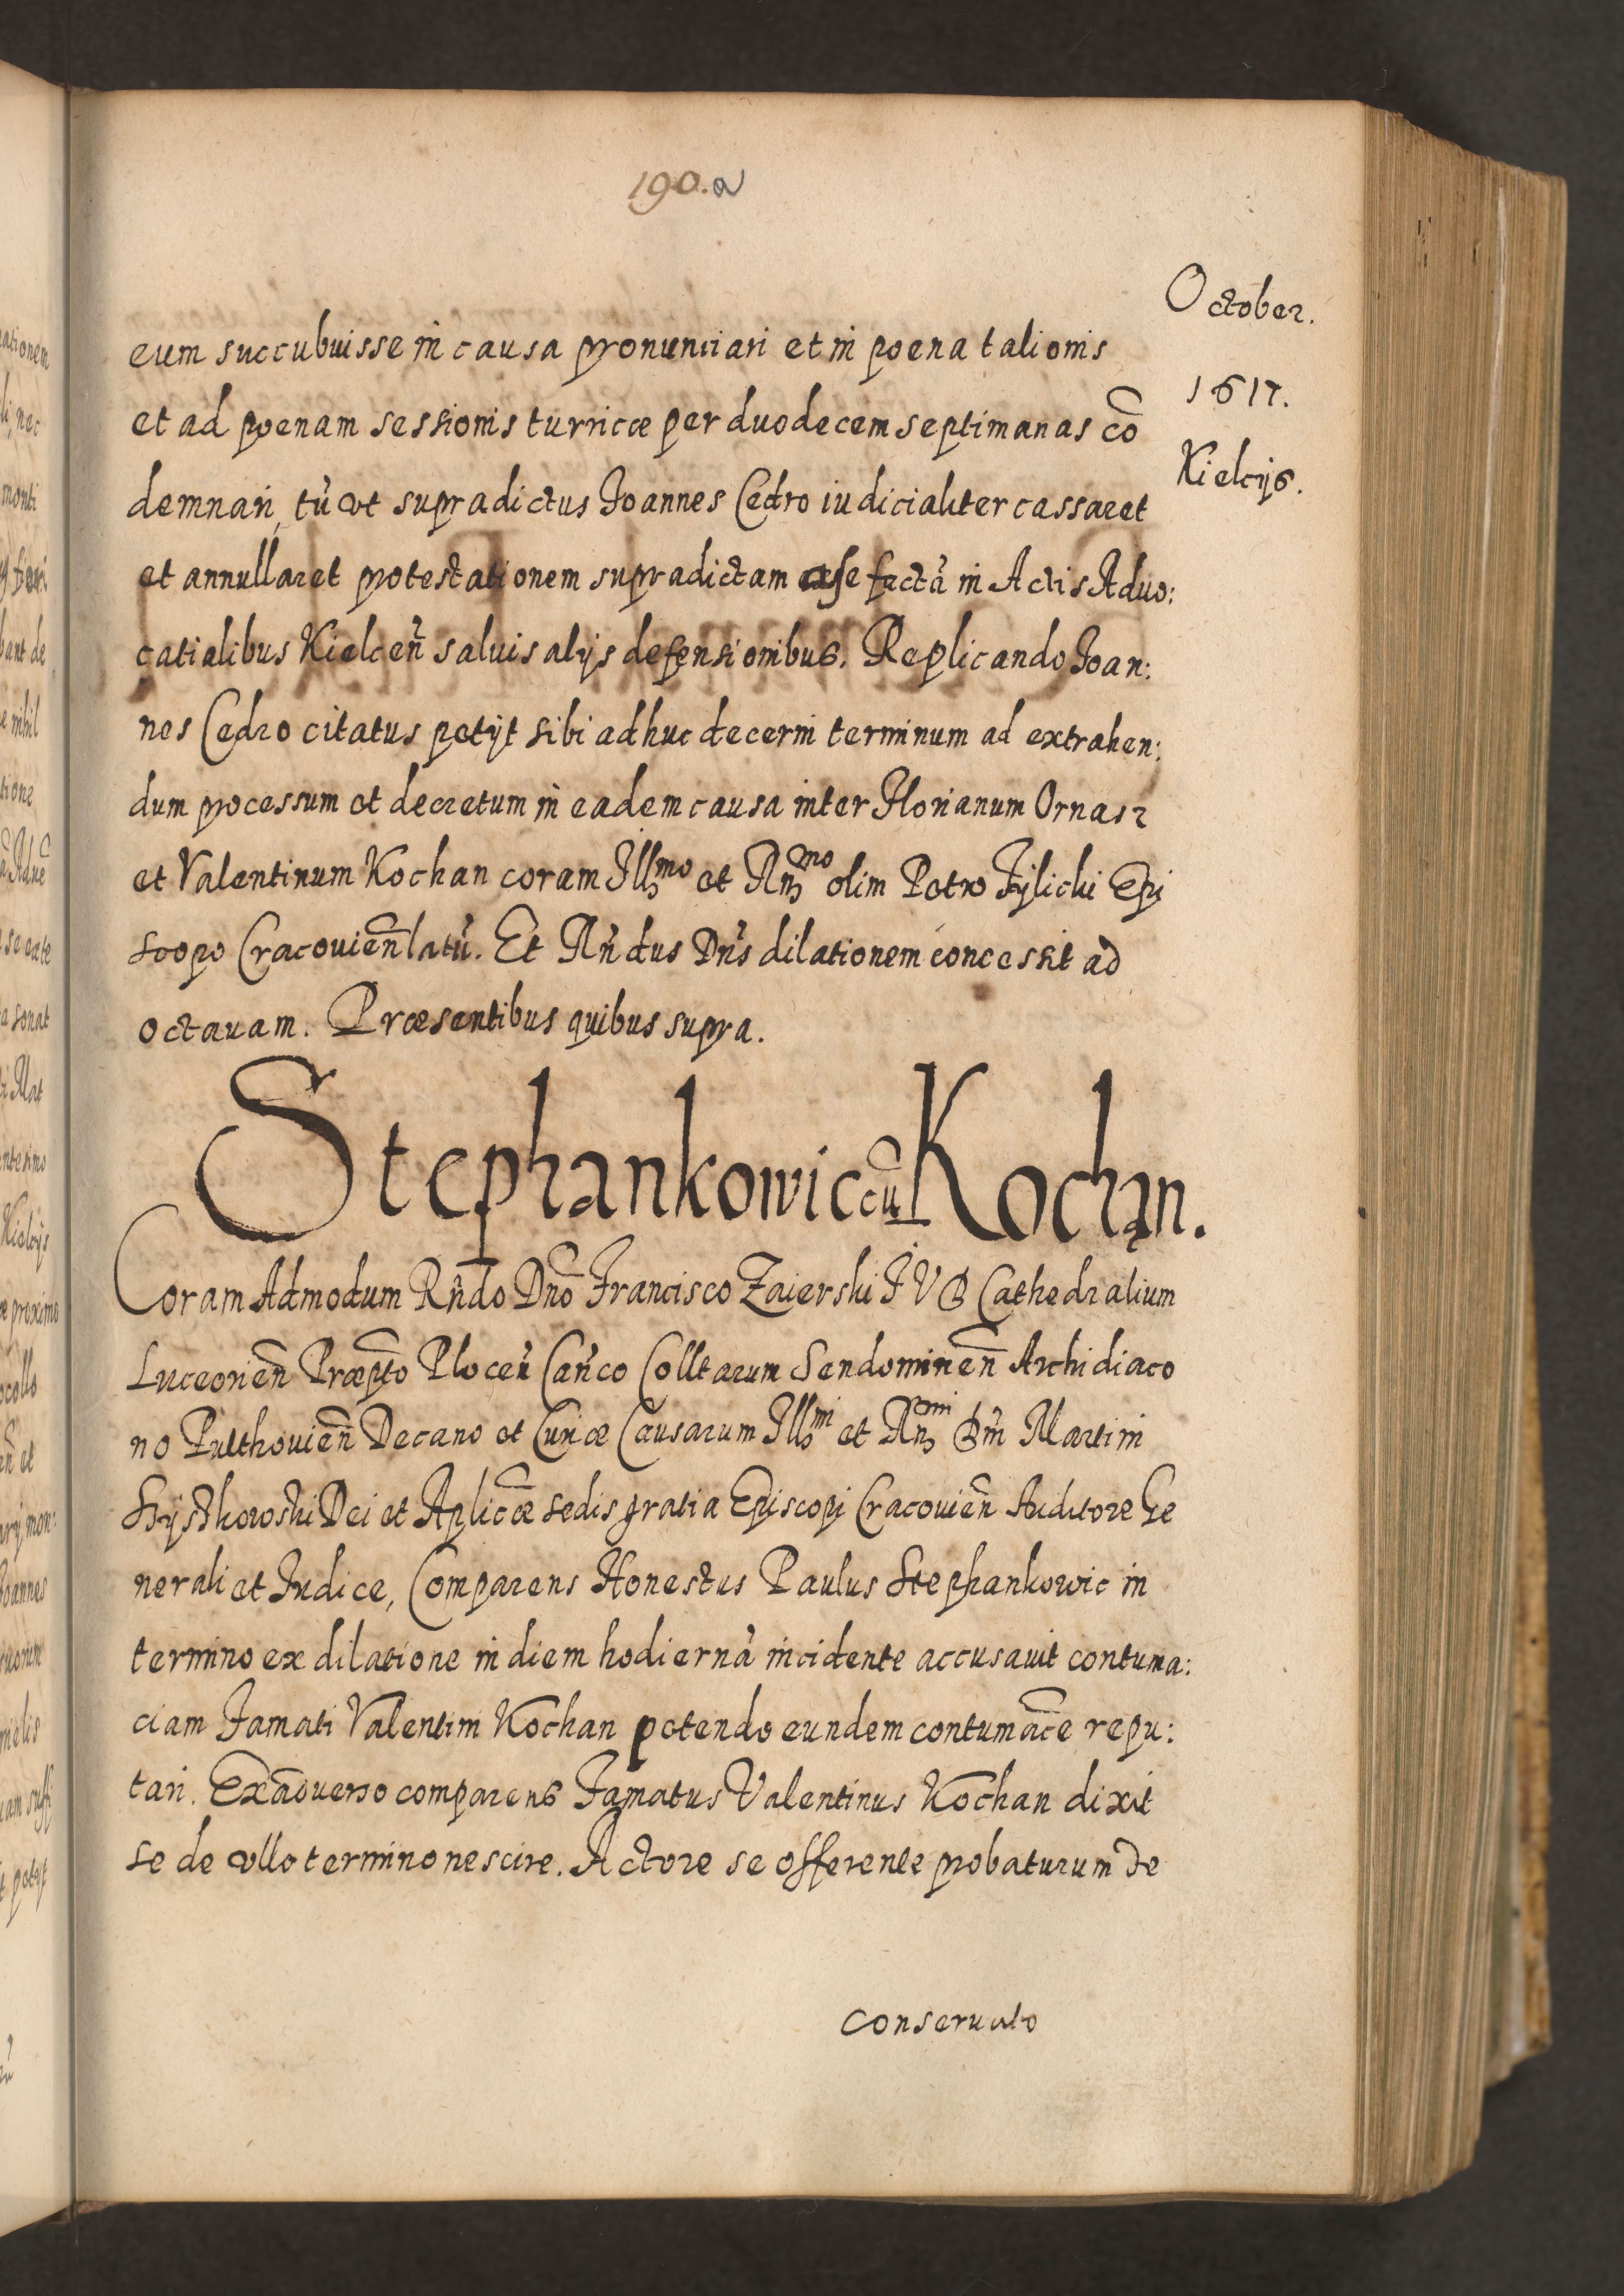 190.a
October.
1617.
Kielcijs.
eum succubuisse in causa pronunciari et in poena talionis
et ad poenam sessionis turricæ per duodecem septimanas cō
demnari, tū vt supradictus Joannes Cedro iudicialiter cassaret
et annullaret protestationem supradictam a se factā in Actis Aduo:
catialibus Kielceñ saluis alijs defensionibus. Replicando Joan:
nes Cedro citatus petijt sibi adhuc decerni terminum ad extrahen:
dum processum et decretum in eadem causa inter Florianum Ornasz
et Valentinum Kochan coram Illmo et Rndmo olim Petro Tylicki Epi
scopo Cracouień latū. Et Rńdus Dńs dilationem concessit ad
octauam. Præsentibus quibus supra.
Stephankowic cū Kochąn.
Coram Admodum Rńdo Dńo Francisco Zaierski J V D Cathedralium
Luceorień Præpto Ploceń Cańco Colltarum Sendomirień Archidiaco
no Pulthouień Decano et Curiæ Causarum Illmi et Rndmi Dńi Martini
Szyszkowski Dei et Aplicæ sedis gratia Episcopi Cracouień Auditore Ge
nerali et Judice, Comparens Honestus Paulus Stephankowic in
termino ex dilatione in diem hodiernā incidente accusauit contuma:
ciam Famati Valentini Kochan petendo eundem contumacē repu:
tari. Ex aduerso comparens Famatus Valentinus Kochan dixit
se de vllo termino nescire. Actore se offerente probaturum de
conseruato